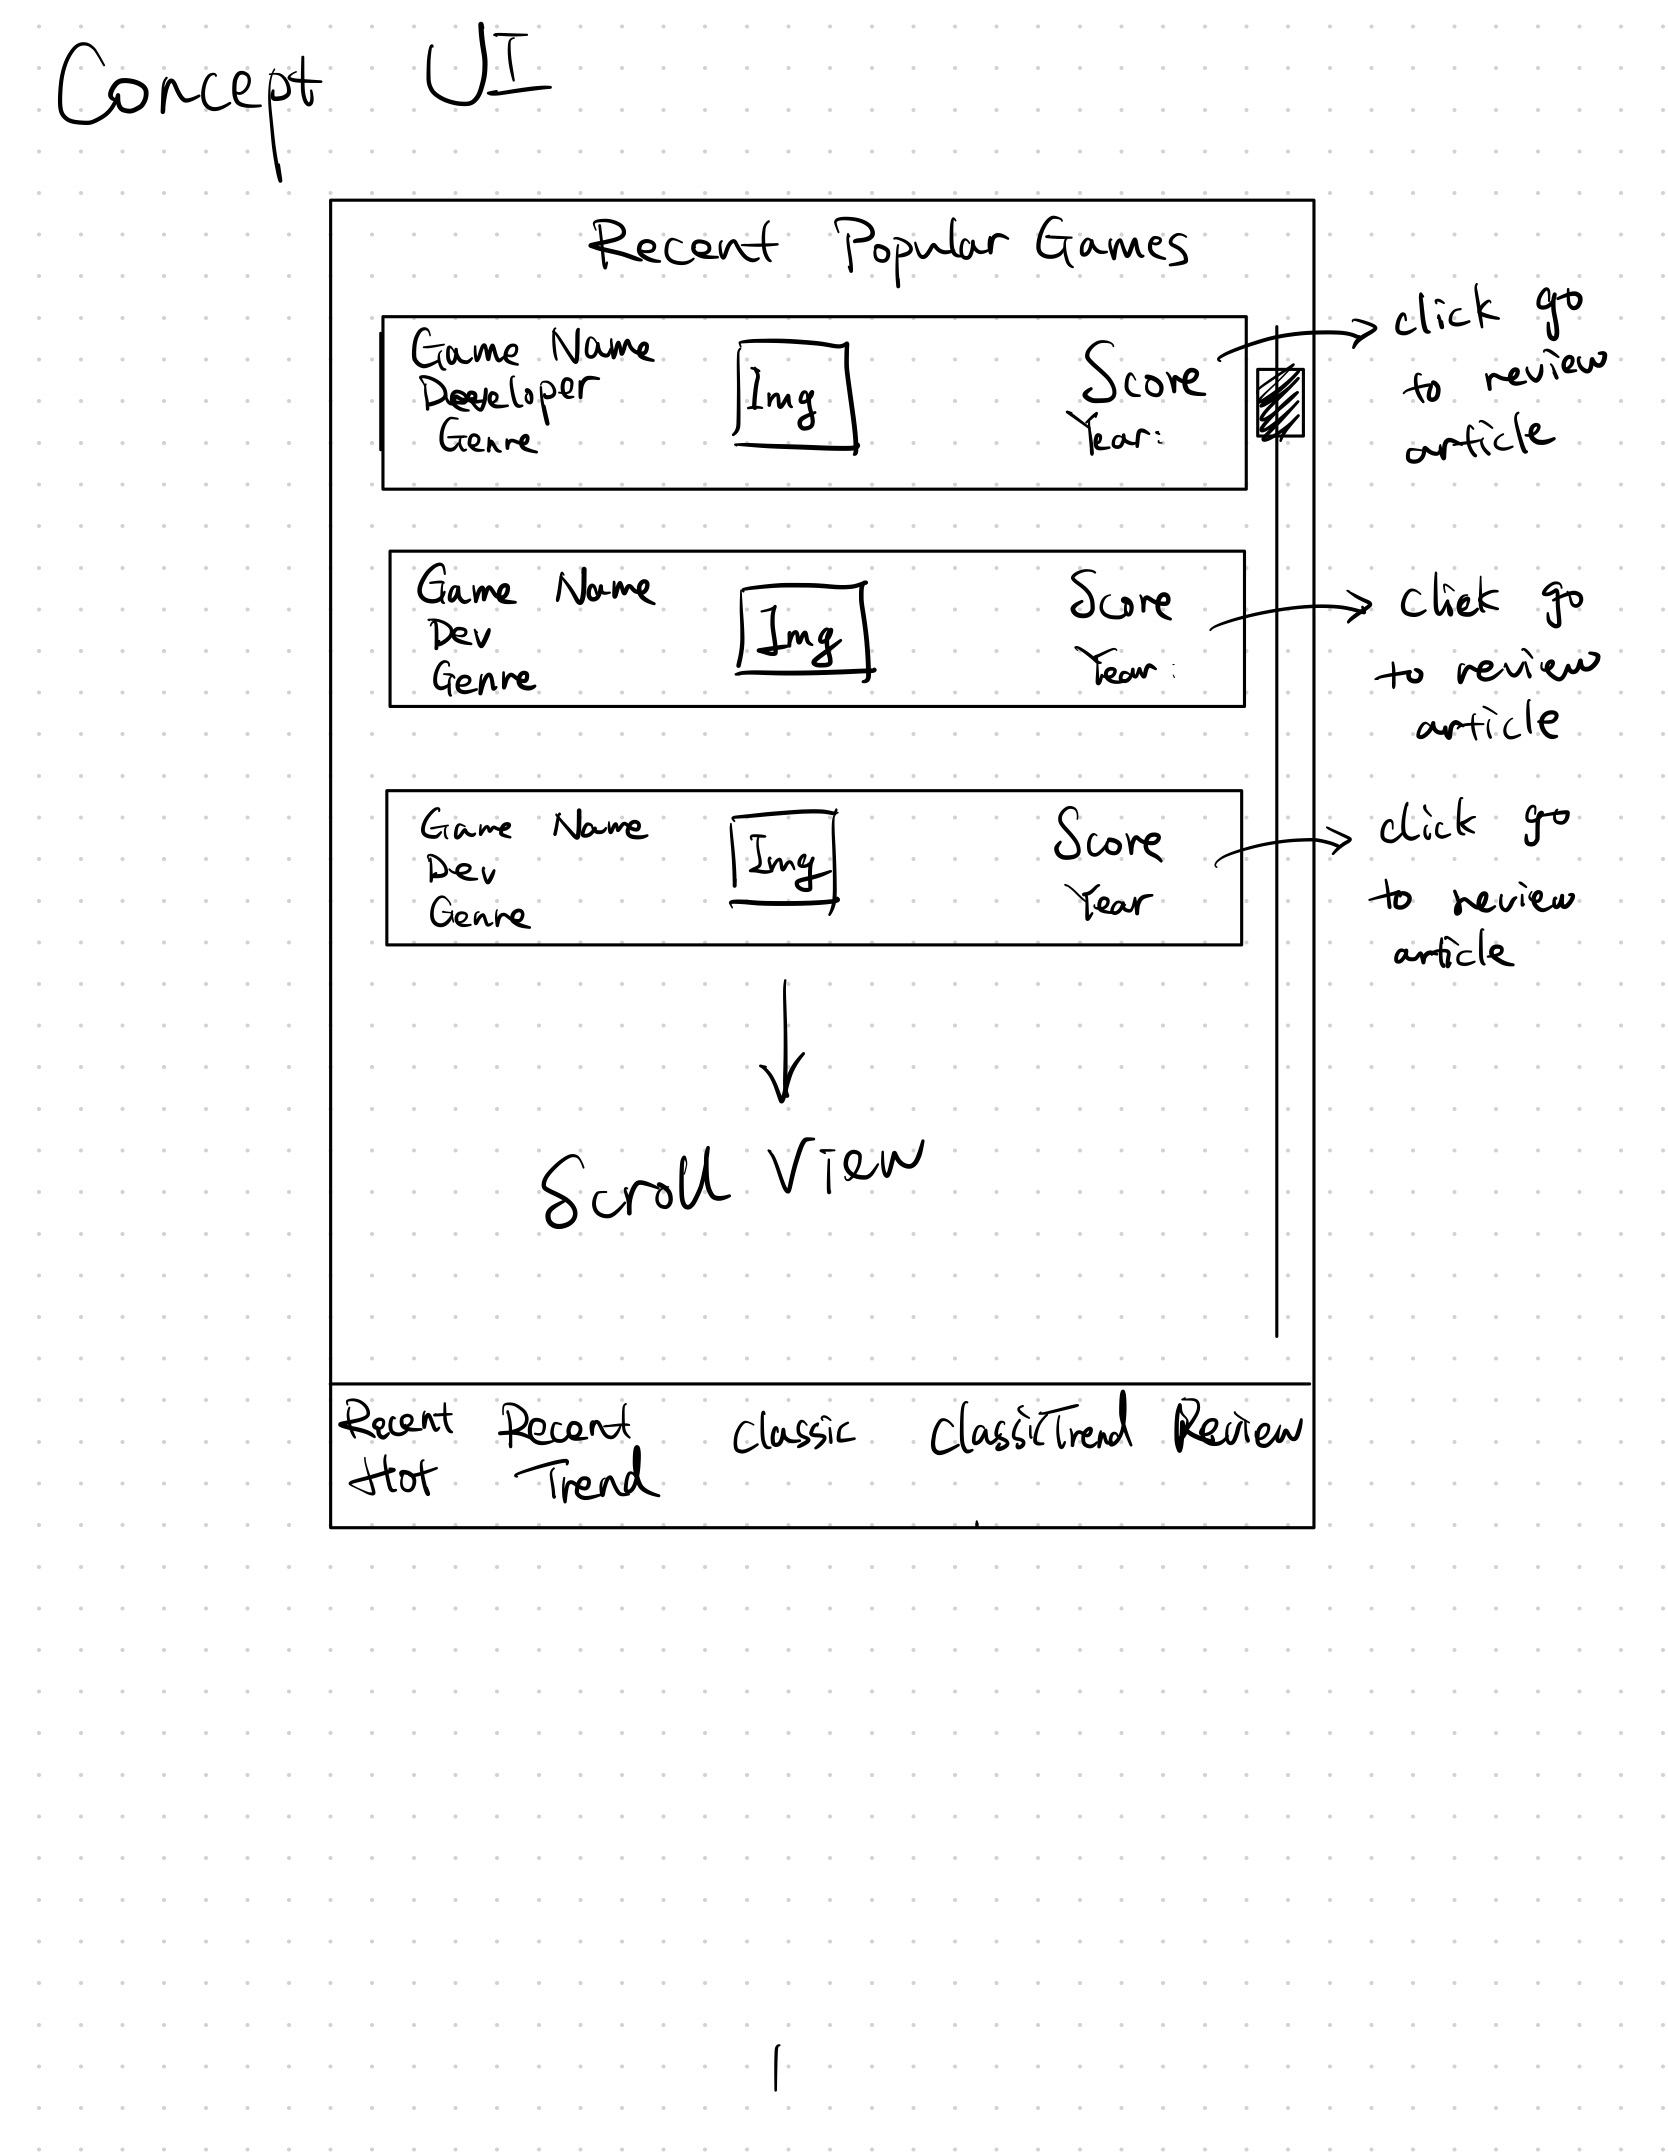 Concept UI
Recent Popular Games
Game Name
Developer
Genre
Img
Score
Year:
click go
to review
article
Game Name
Dev
Genre
Img
Score
Year:
click go
to review
article
Game Name
Dev
Genre
Img
Score
Year
click go
to review
article
Scroll View
Recent
Hot
Recent
Trend
Classic
ClassicTrend
Review
1